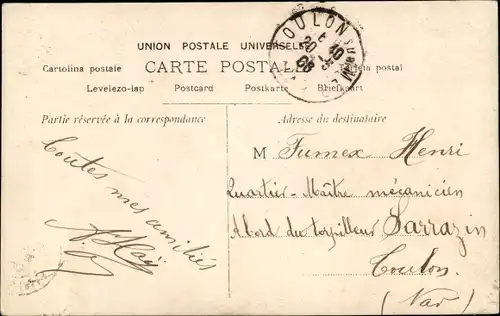 TOULON SUR MER
6 40
20 -5
08
UNION POSTALE UNIVERSELLE
Cartolina postale CARTE POSTALE postal
Levelezo-lap Postcard Postkarte Briefkaart
Partie réservée à la correspondance
Toutes mes amitiés
Adresse du destinataire
M Fumex Henri
Quartier-Maître mécanicien
A bord du torpilleur Sarrazin
Toulon
(Var)